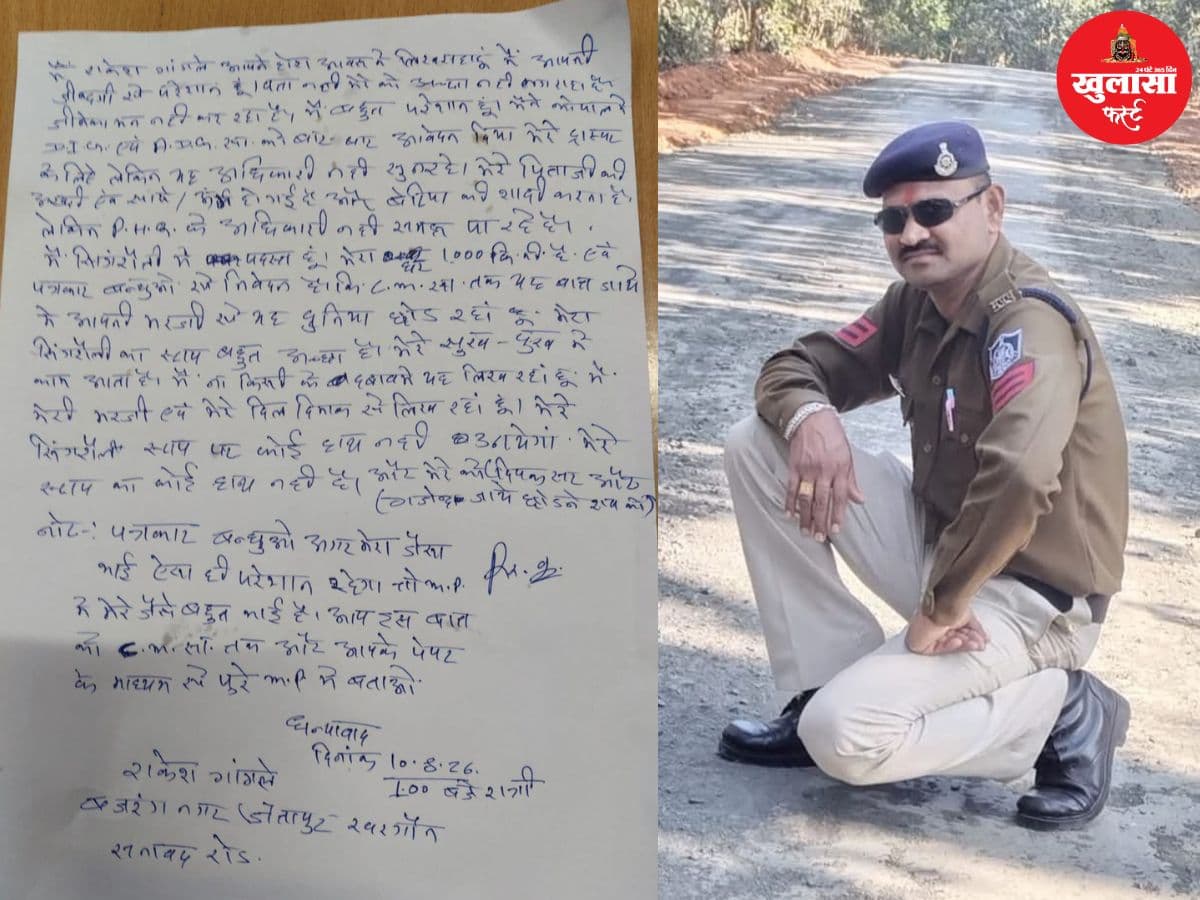 मैं राकेश गांगले आपने होश आवाज में लिख रहा हूं मैं आपनी
जीन्दगी से परेशान हूं। पता नहीं मेरे को अच्छा नहीं लग रहा है
मन नहीं कर रहा है। मैं बहुत परेशान हूं। मैंने भोपाल में
D.I.G. एवं A.D.G. सर. को बार बार आवेदन दिया मेरे ट्रास्पर
के लिए लेकिन यह अधिकारी नहीं सुन रहे। मेरे पिताजी की
हो गई है और बेटिया की शादी करना है.
लेकिन P.H.Q. के अधिकारी नहीं समझ पा रहे है।
मैं सिंगरौली में पदस्त हूं। मेरा घर 1000 कि.मी. है. एवं
पत्रकार बन्धुओ से निवेदन है। कि C.M. सर. तक यह बात जाये
मैं आपनी मरजी से यह दुनिया छोड रहां हूं. मेरा
सिंगरौली का स्टाप बहुत अच्छा है। मेरे सुख-दुख में
काम आता है। मैं ना किसी के दबाव में यह लिख रहां हूं मैं.
मेरी मरजी एवं मेरे दिल दिमाक से लिख रहां हूं। मेरे
सिंगरौली स्टाप पर कोई हाथ नहीं मेरे
स्टाप का कोई हाथ नहीं है। और मेरे को (दिपक सर और
जाये छोडने शव को)
नोट-: पत्रकार बन्धुओ अगर मेरा जैसा
भाई ऐसा ही परेशान रहेगा तो M.P.
में मेरे जैसे बहुत भाई है। आप इस बात
को C.M. सा. तक और आपके पेपर
के माध्यम से पुरे M.P में बताओ.
धन्यावाद
दिनांक 10.8.26.
1.00 बजे रात्री
राकेश गांगले
बजरंग नगर जैतापुर खरगौन
सनावद रोड.
24 घंटे 365 दिन
खुलासा
फर्स्ट